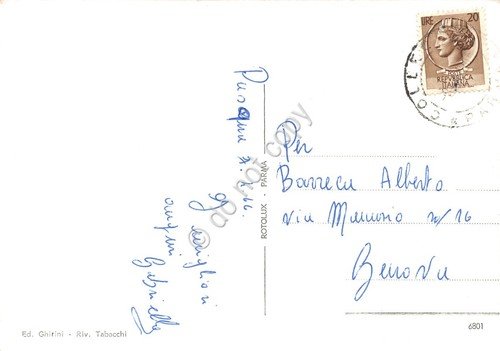 LIRE 20
POSTE
REPUBBLICA
ITALIANA
COLLE
Pasqua
66.
gli migliori
auguri
Gabriella
do not copy
ROTOLUX - PARMA
Per
Barreca Alberto
via
n/16
Genova
Ed. Ghirini - Riv. Tabacchi
6801